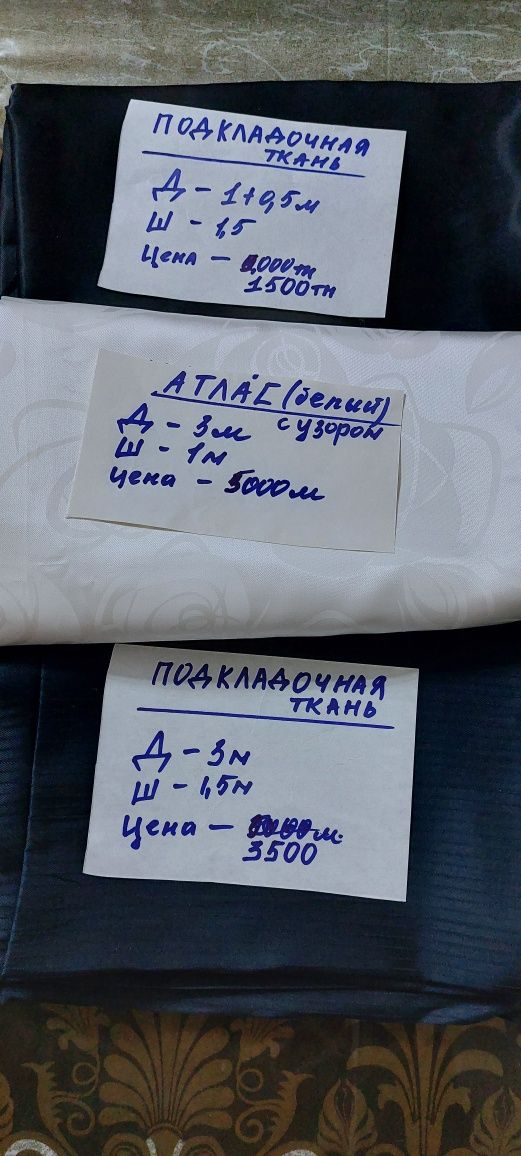 ПОДКЛАДОЧНАЯ
ТКАНЬ
Д - 1+0,5м
Ш - 1,5
Цена - 000тн
1500тн
АТЛАС (белый)
с узором
Д - 3м
Ш - 1м
Цена - 5000м
ПОДКЛАДОЧНАЯ
ТКАНЬ
Д - 3м
Ш - 1,5м
Цена - м.
3500